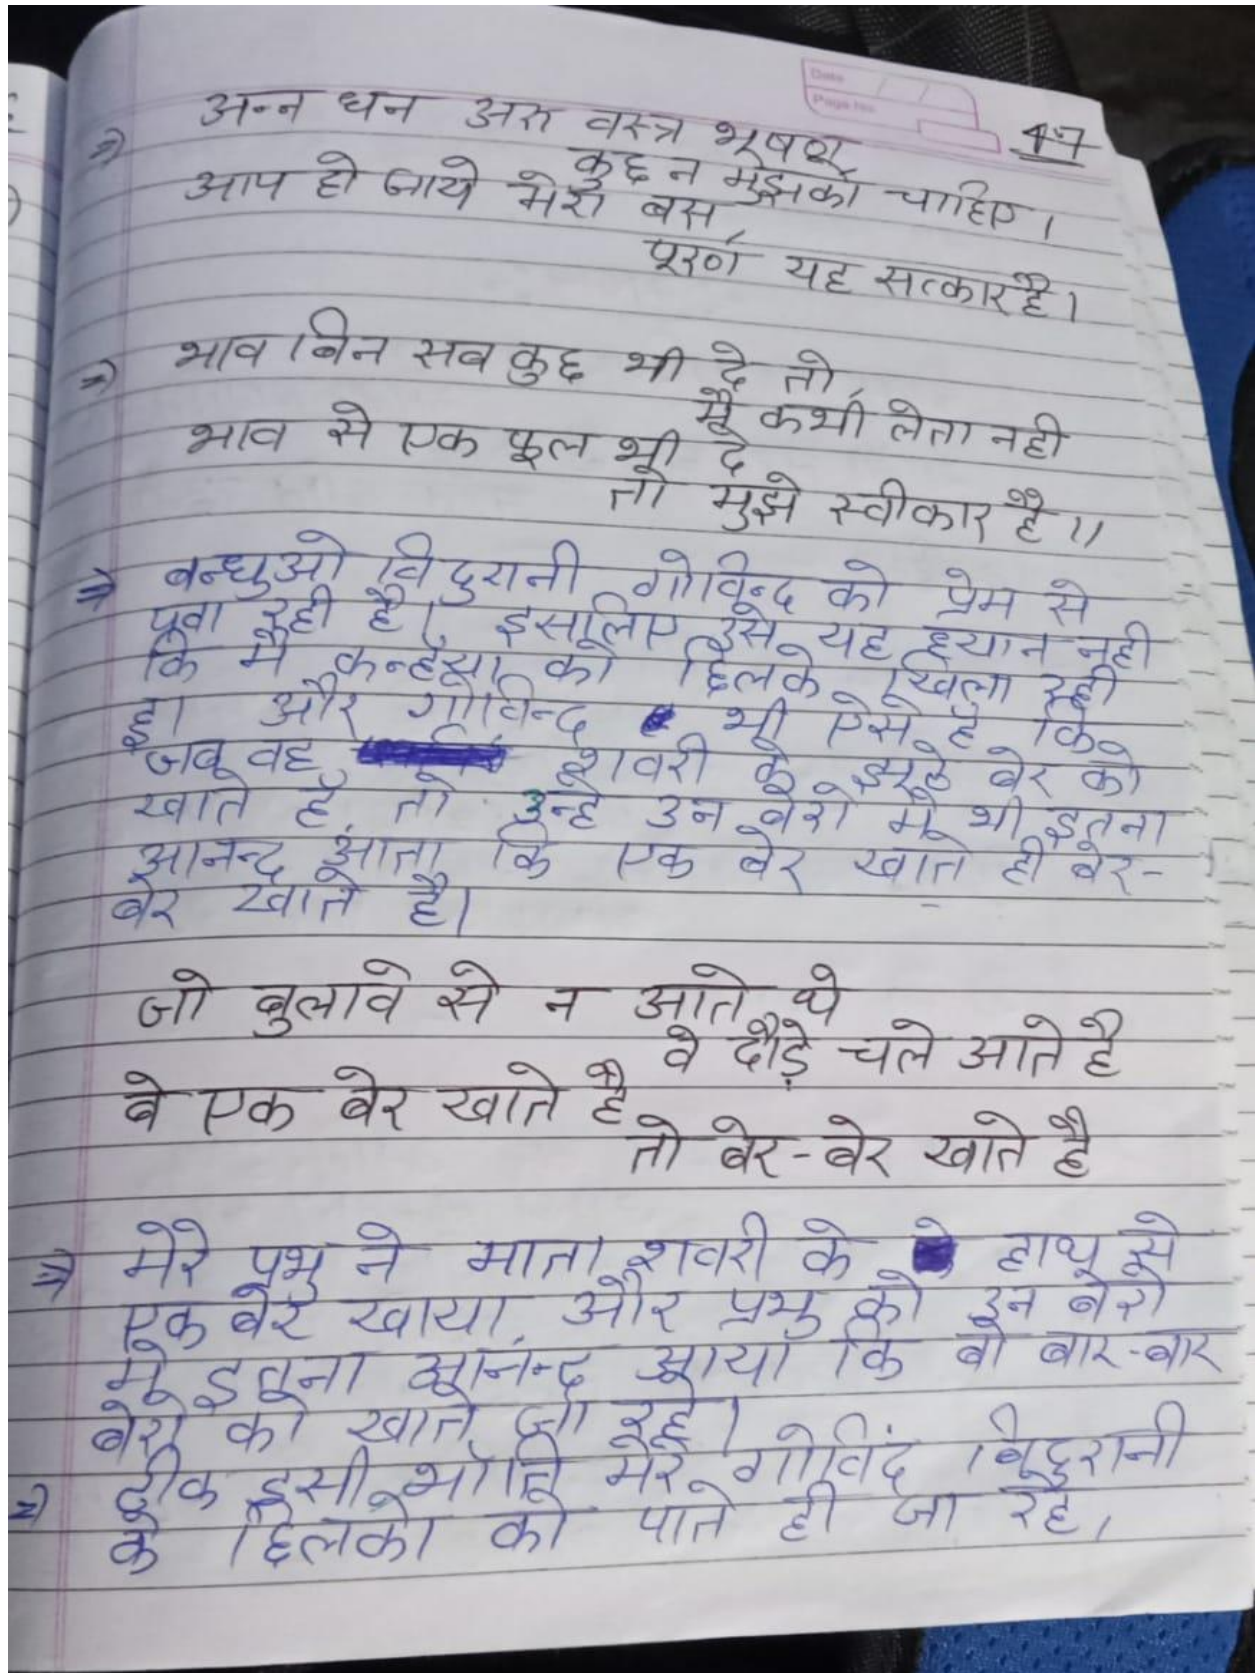 Date
Page No.
47
⇒ अन्न धन अरु वस्त्र भूषण
कुछ न मुझको चाहिए।
आप हो जाये मेरे बस,
पूरर्ण यह सत्कार है।
⇒ भाव बिन सब कुछ भी दे तो,
मै कभी लेता नही
भाव से एक फूल भी दे
तो मुझे स्वीकार है॥
⇒ बन्धुओ विदुरानी गोविन्द को प्रेम से
पवा रही है। इसलिए उसे यह ध्यान नही
कि मै कन्हैया को छिलके खिला रही
हा और गोविन्द भी ऐसे है कि
जब वह शवरी के झूठे बेर को
खाते है, तो उन्हे उन बेरो मे भी इतना
आनन्द आता कि एक बेर खाते ही बेर-
बेर खाते है।
जो बुलावे से न आते थे
वे दौड़े चले आते है
वे एक बेर खाते है
तो बेर-बेर खाते है
⇒ मेरे प्रभु ने माता शवरी के हाथ से
एक बेर खाया, और प्रभु को उन बेरो
मे इतना आनन्द आया कि वो बार-बार
बेरो को खाते जा रहे।
⇒ ठीक इसी भाँति मेरे गोविंद विदुरानी
के छिलको को पाते ही जा रहे।